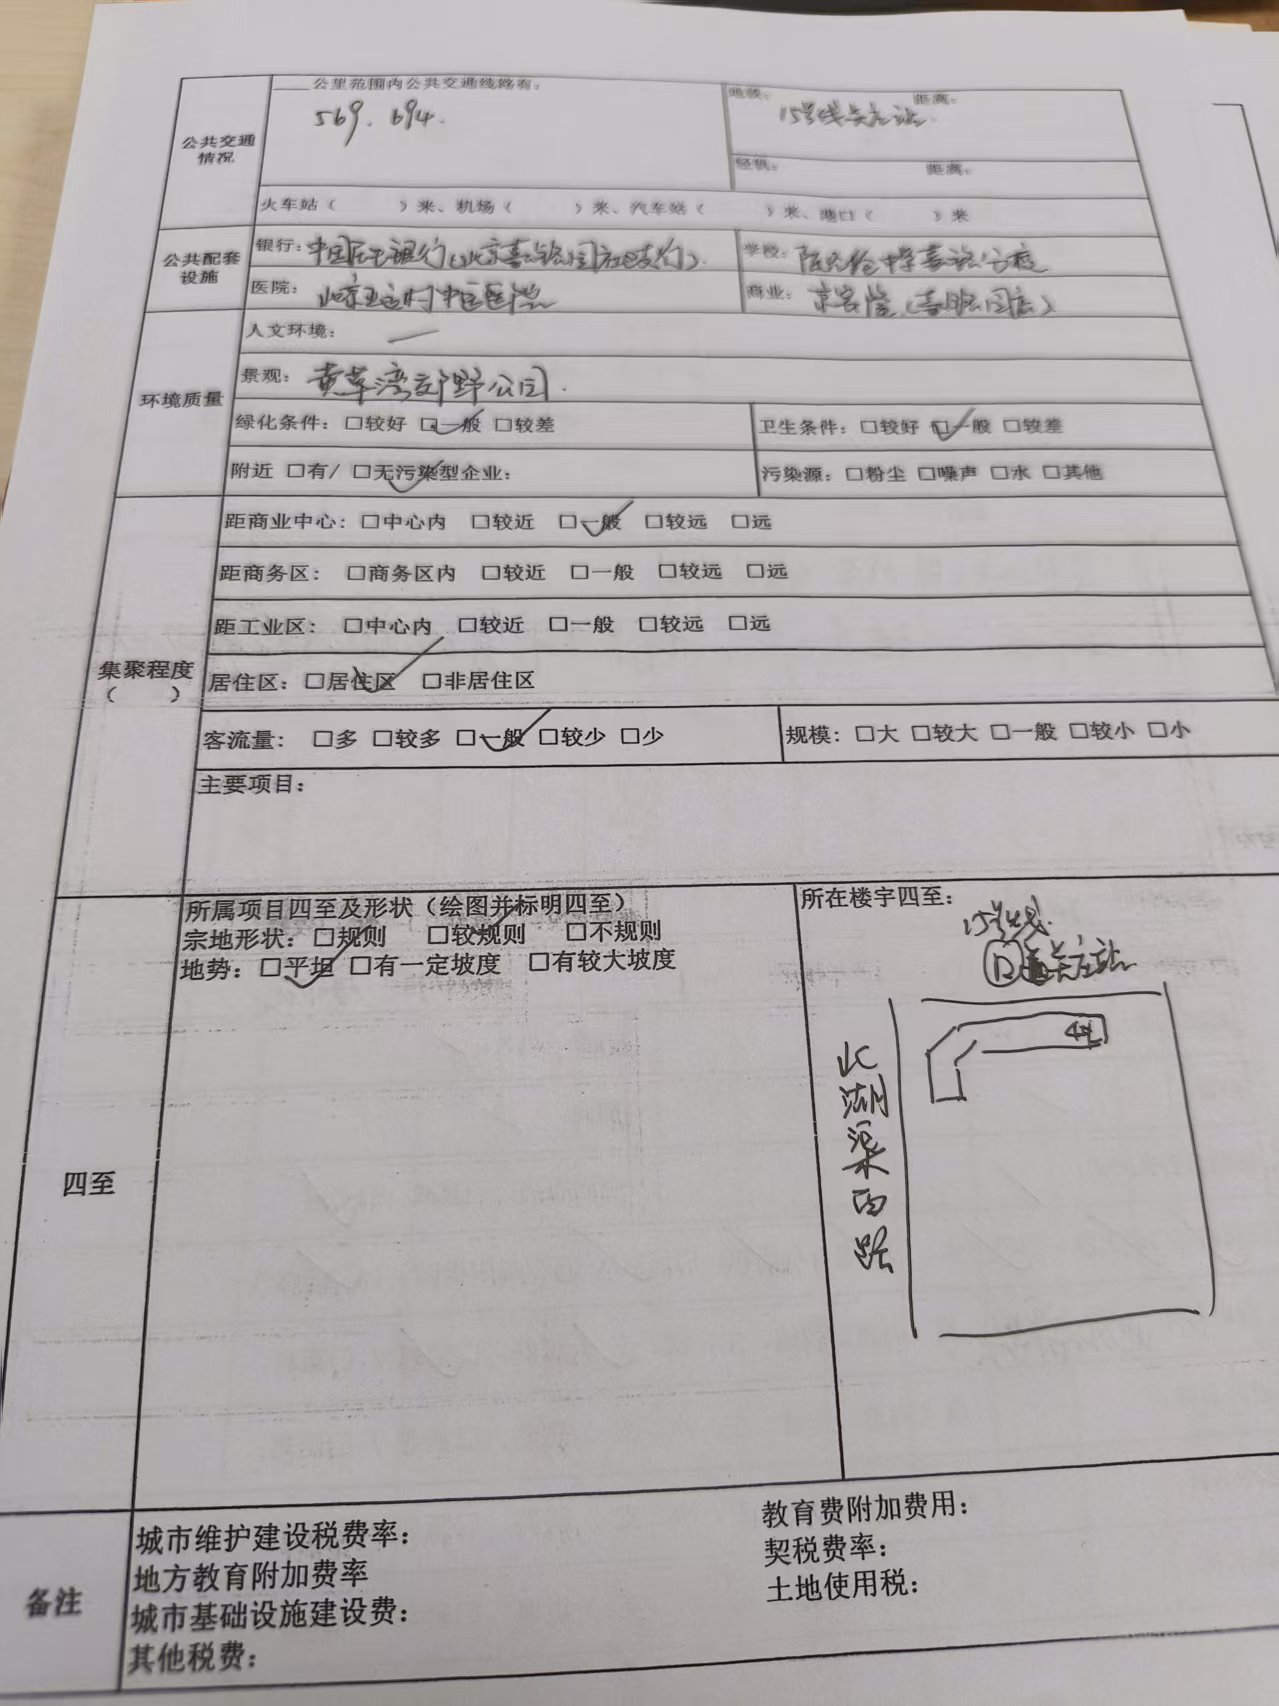 ____公里范围内公共交通线路有：
569、694.
地铁： 距离：
15号线关庄站
公共交通情况
轻轨： 距离：
火车站（ ）米、机场（ ）米、汽车站（ ）米、港口（ ）米
公共配套设施
银行：中国民生银行（北京嘉铭园社区支行） 学校：陈经纶中学嘉铭分校
医院：北京亚运村中医医院 商业：京客隆（嘉铭园店）
环境质量
人文环境： —
景观：黄草湾郊野公园.
绿化条件：□较好 ☑一般 □较差 卫生条件：□较好 ☑一般 □较差
附近 □有/ ☑无污染型企业： 污染源：□粉尘 □噪声 □水 □其他
集聚程度（ ）
距商业中心：□中心内 □较近 ☑一般 □较远 □远
距商务区： □商务区内 □较近 □一般 □较远 □远
距工业区： □中心内 □较近 □一般 □较远 □远
居住区：☑居住区 □非居住区
客流量： □多 □较多 ☑一般 □较少 □少 规模：□大 □较大 □一般 □较小 □小
主要项目：
四至
所属项目四至及形状（绘图并标明四至）
宗地形状：☑规则 ☑较规则 □不规则
地势：☑平坦 □有一定坡度 □有较大坡度
所在楼宇四至：
15号线
关庄站
北湖渠西路
备注
城市维护建设税费率： 教育费附加费用：
地方教育附加费率 契税费率：
城市基础设施建设费： 土地使用税：
其他税费：